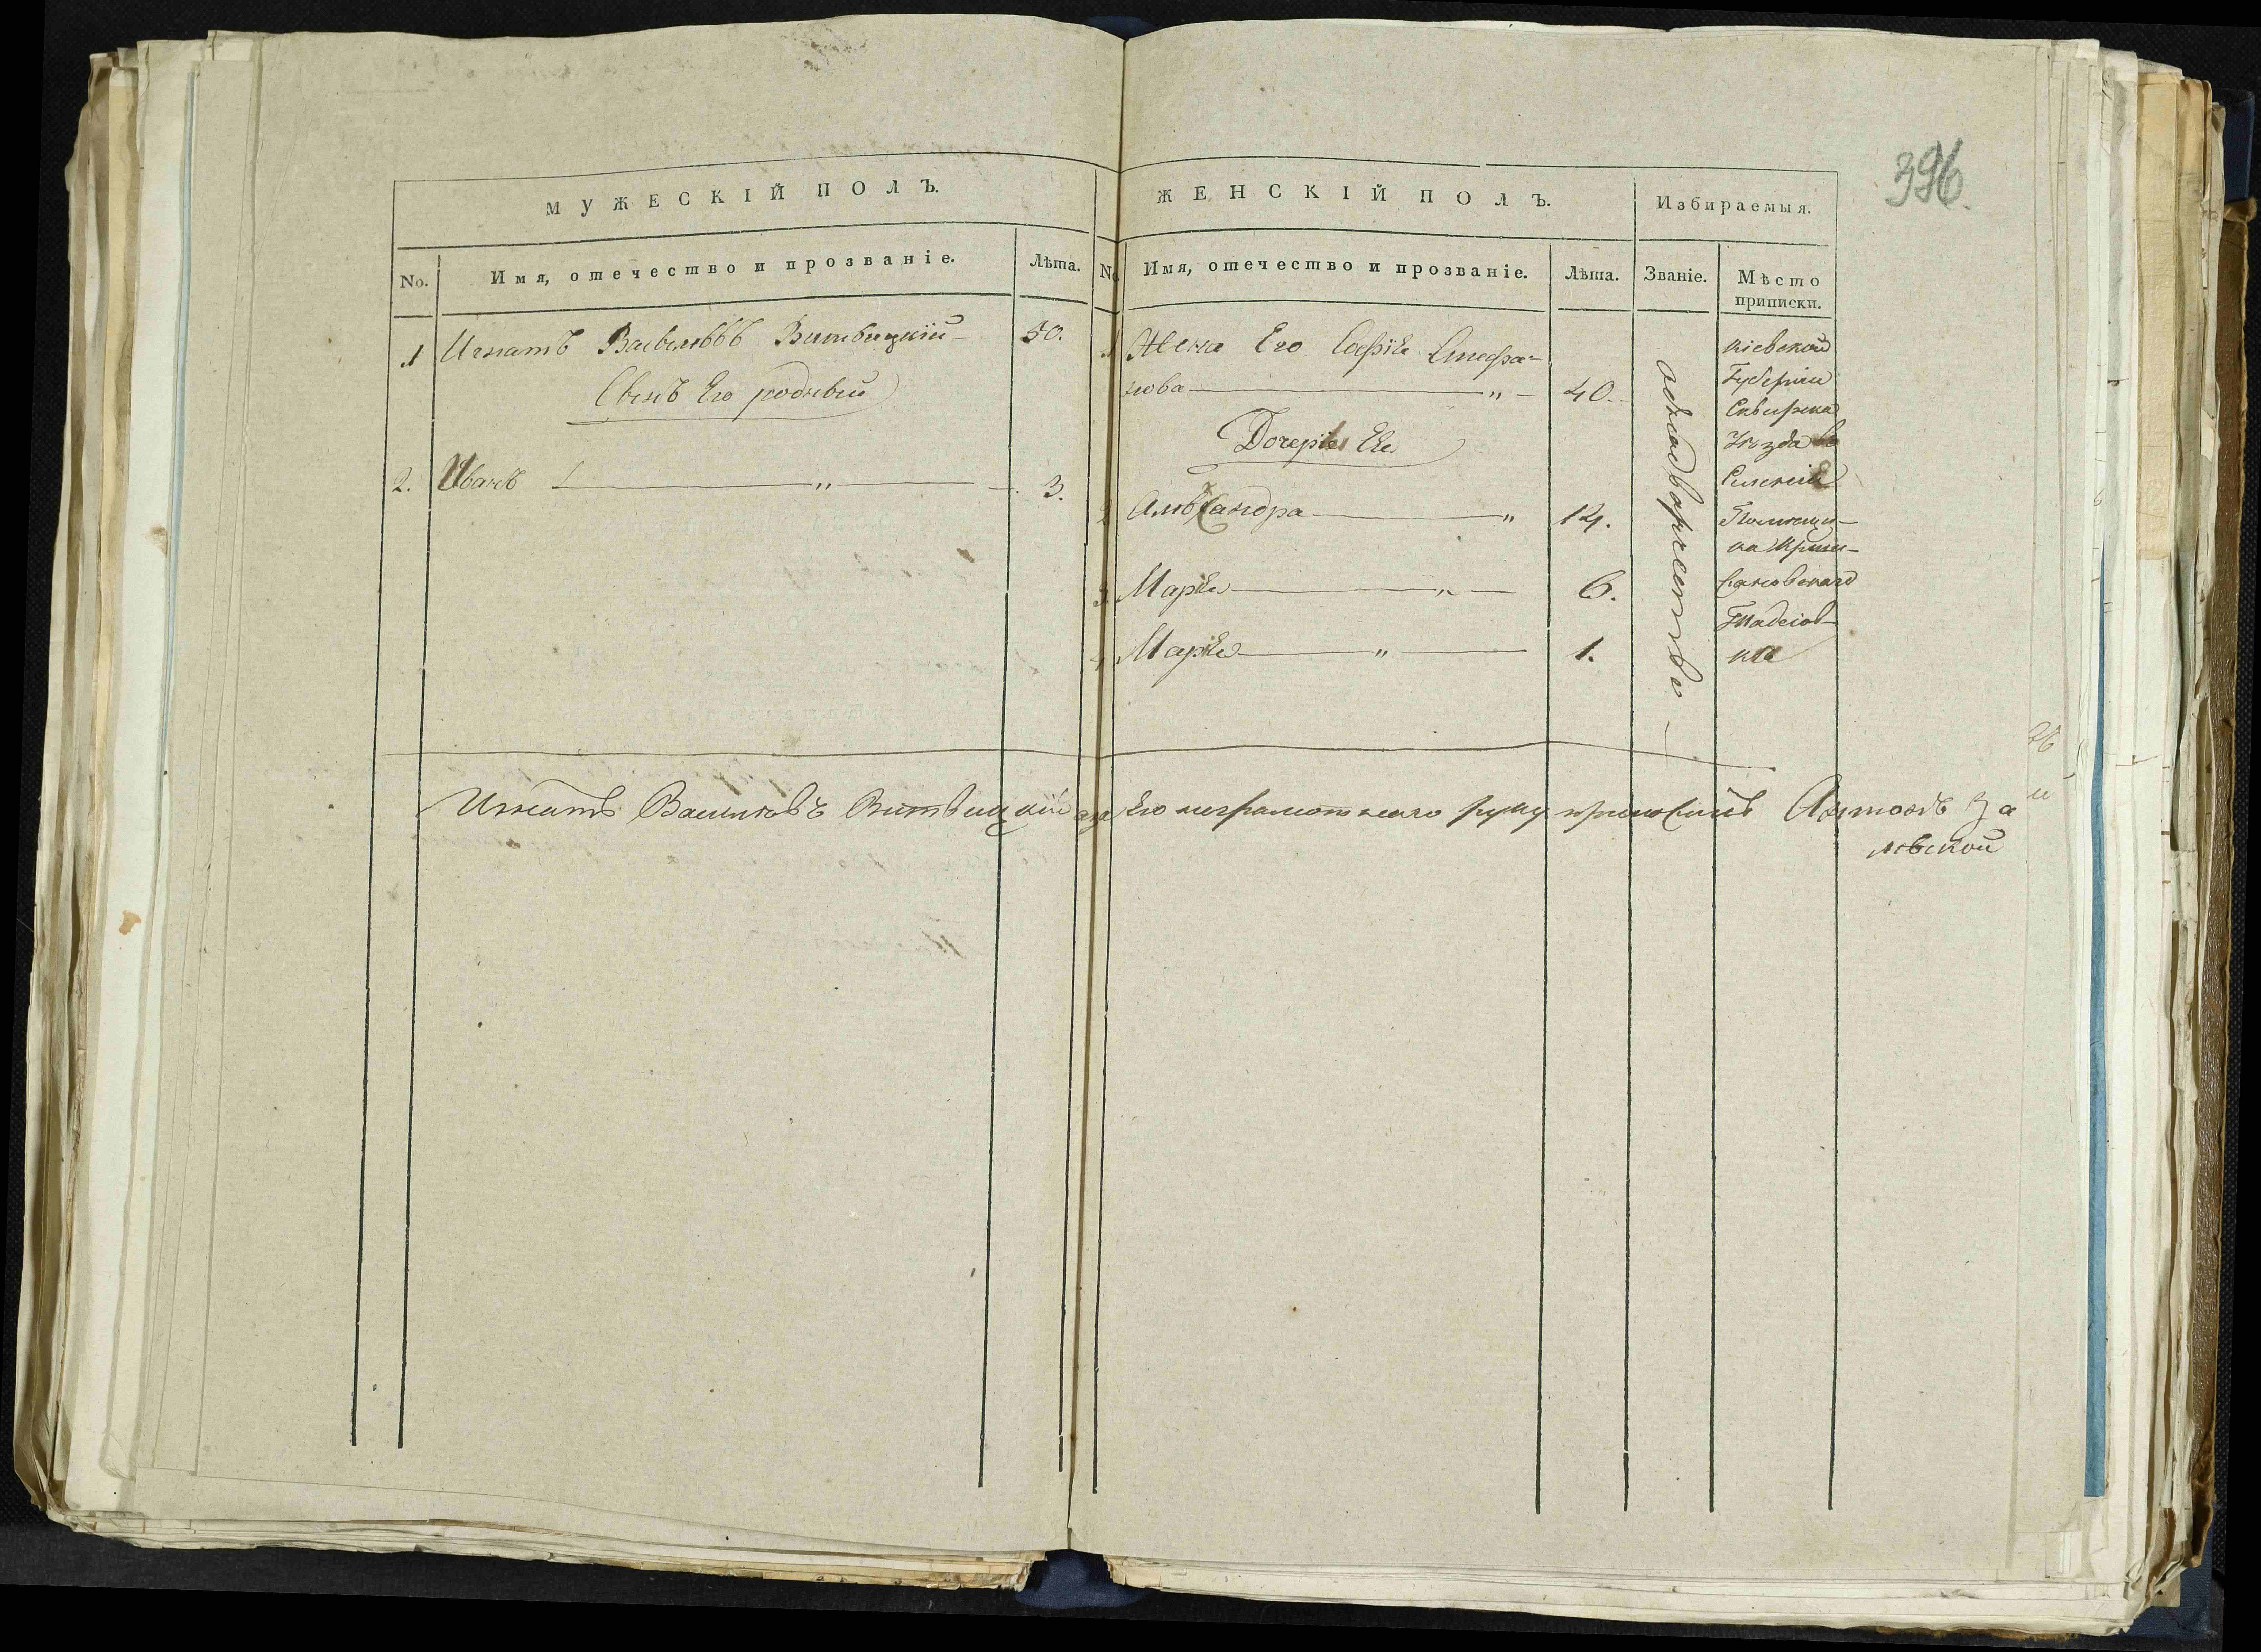 396.
МУЖЕСКІЙ ПОЛЪ.
No. Имя, отечество и прозваніе. Лѣта.
1 Игнатъ Васильевъ Витвицкій 50.
Сынъ Его родный
2. Иванъ — „ — 3.
ЖЕНСКІЙ ПОЛЪ. Избираемыя.
No Имя, отечество и прозваніе. Лѣта. Званіе. Мѣсто
приписки.
1 Жена Его Софія Стефа-
нова — „ — 40.
Дочери Ее
Александра — „ 14.
3 Марія — „ — 6.
Марія — „ — 1.
однодворчество
Кіевской
Губерніи
Сквирска
Уѣзда въ
Селеніе
Помѣщи-
ка
Фаде
ка
Игнатъ Васильовъ Витвицкій а за Его неграмотнаго руку приложилъ Антонъ За
левской